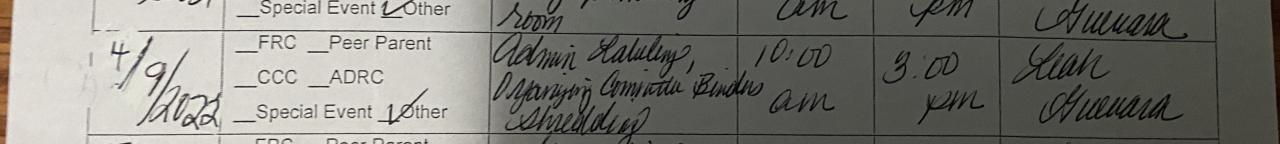 __Special Event ✓Other room am pm Guevara
4/9/2022
__FRC __Peer Parent
__CCC __ADRC
__Special Event ✓Other
Admin Labeling,
Organizing Committee Binders
Shredding
10:00
am
3:00
pm
Leah
Guevara